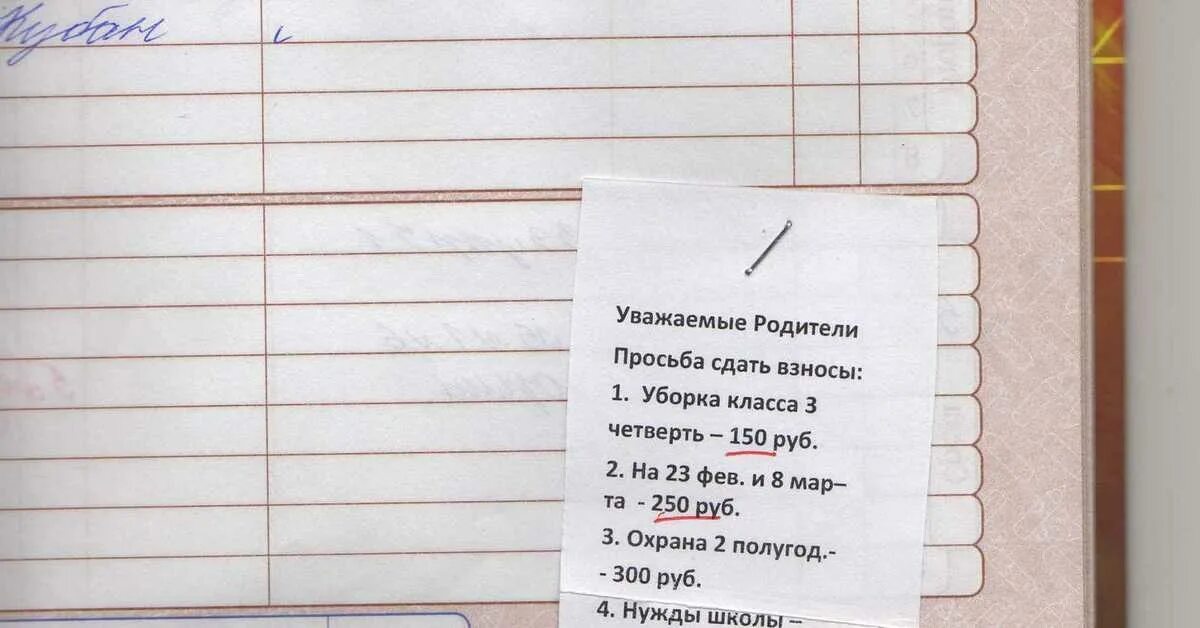 Кубан
Уважаемые Родители
Просьба сдать взносы:
1. Уборка класса 3
четверть – 150 руб.
2. На 23 фев. и 8 мар–
та - 250 руб.
3. Охрана 2 полугод.-
- 300 руб.
4. Нужды школы –